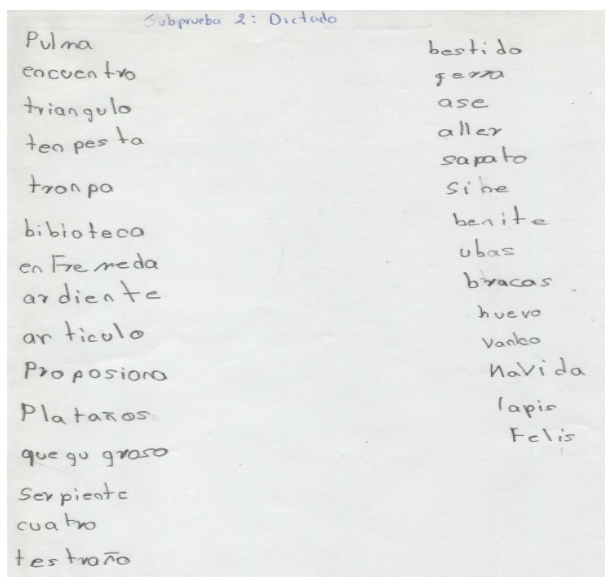 Subprueba 2: Dictado
Pulma
encuentro
triangulo
ten pes ta
tronpa
bibioteca
en Fre meda
ardiente
articulo
Proposiona
Platanos
que gu groso
Serpiente
cuatro
testraño
bestido
gerra
ase
aller
sapato
sine
benite
ubas
bracas
huevo
vanko
Navida
lapis
Felis